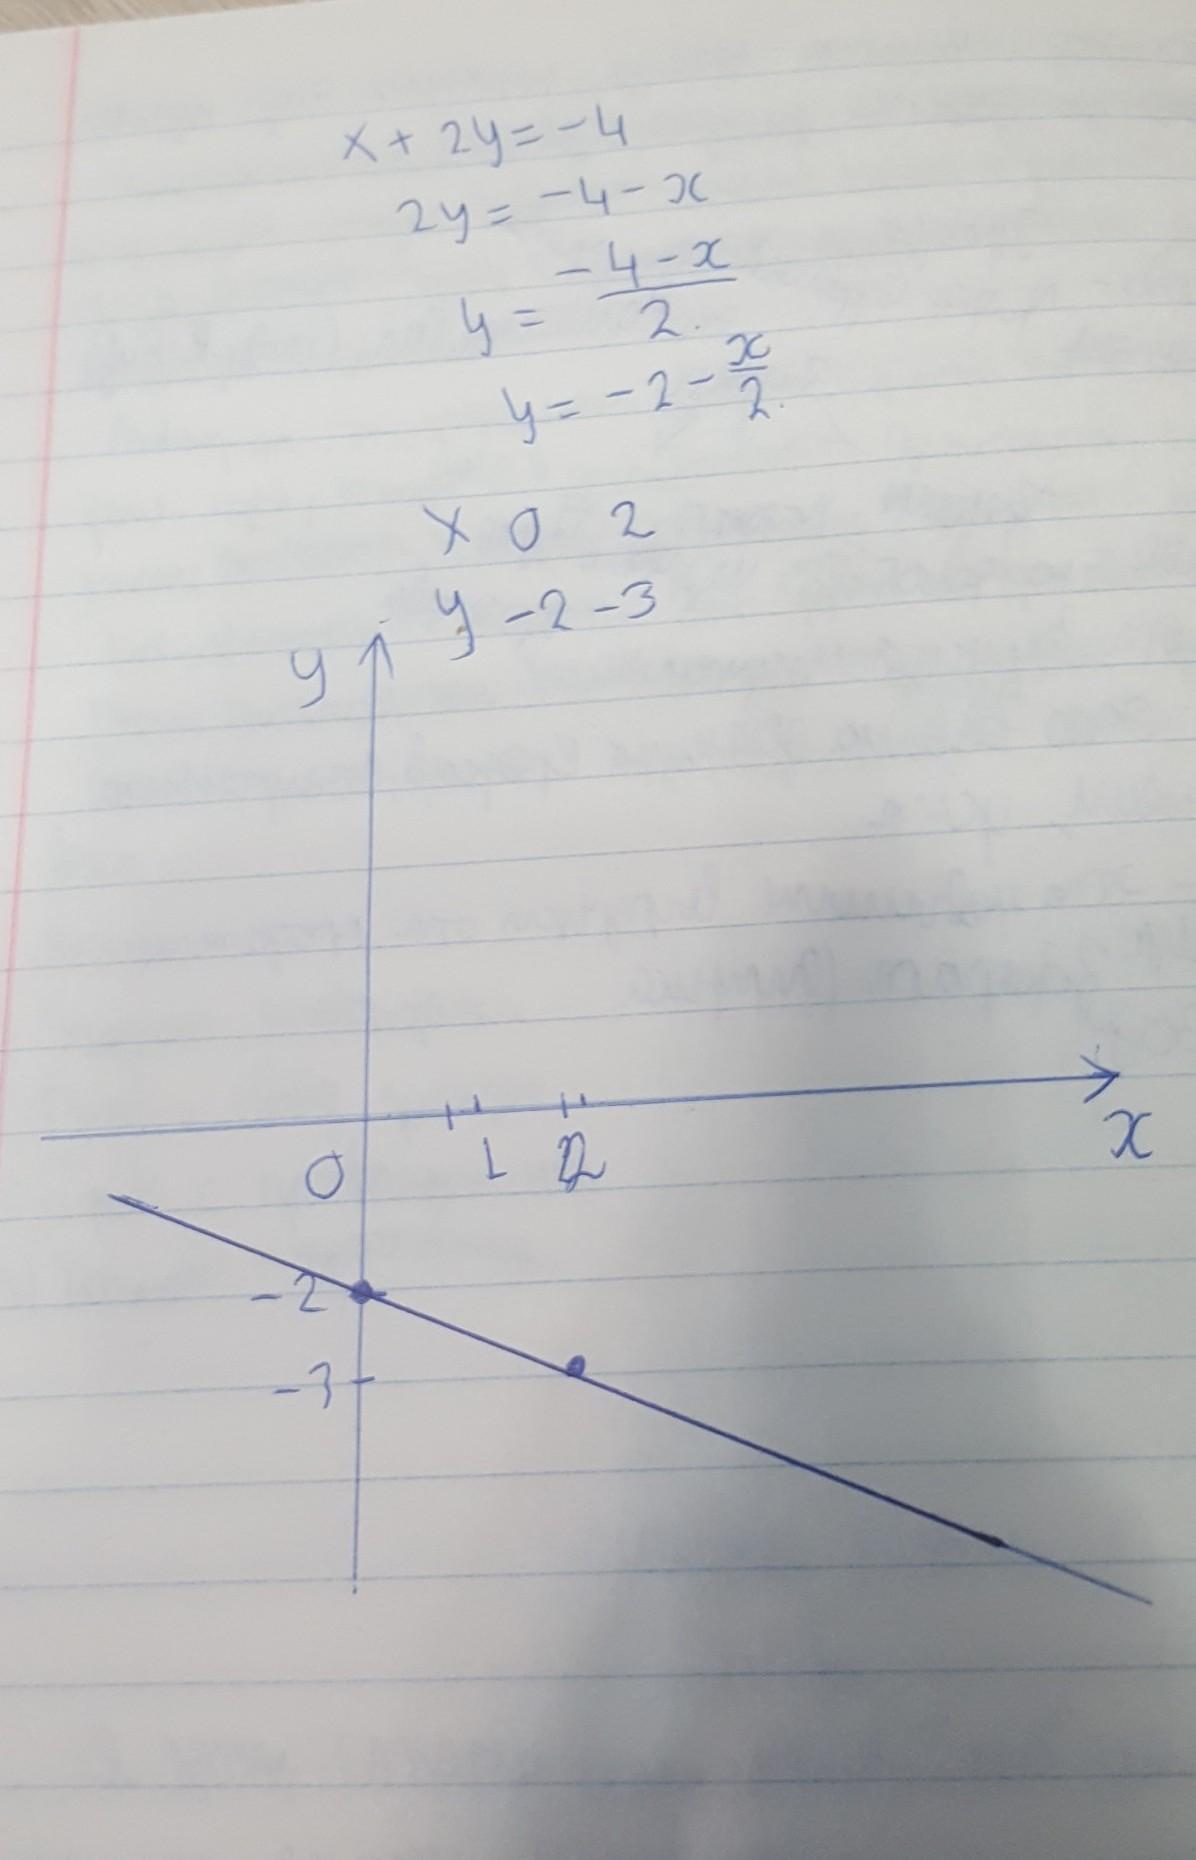 x + 2y = -4
2y = -4 - x
y = (-4 - x)/2.
y = -2 - x/2.
x 0 2
y -2 -3
y
x
0 1 2
-2
-3